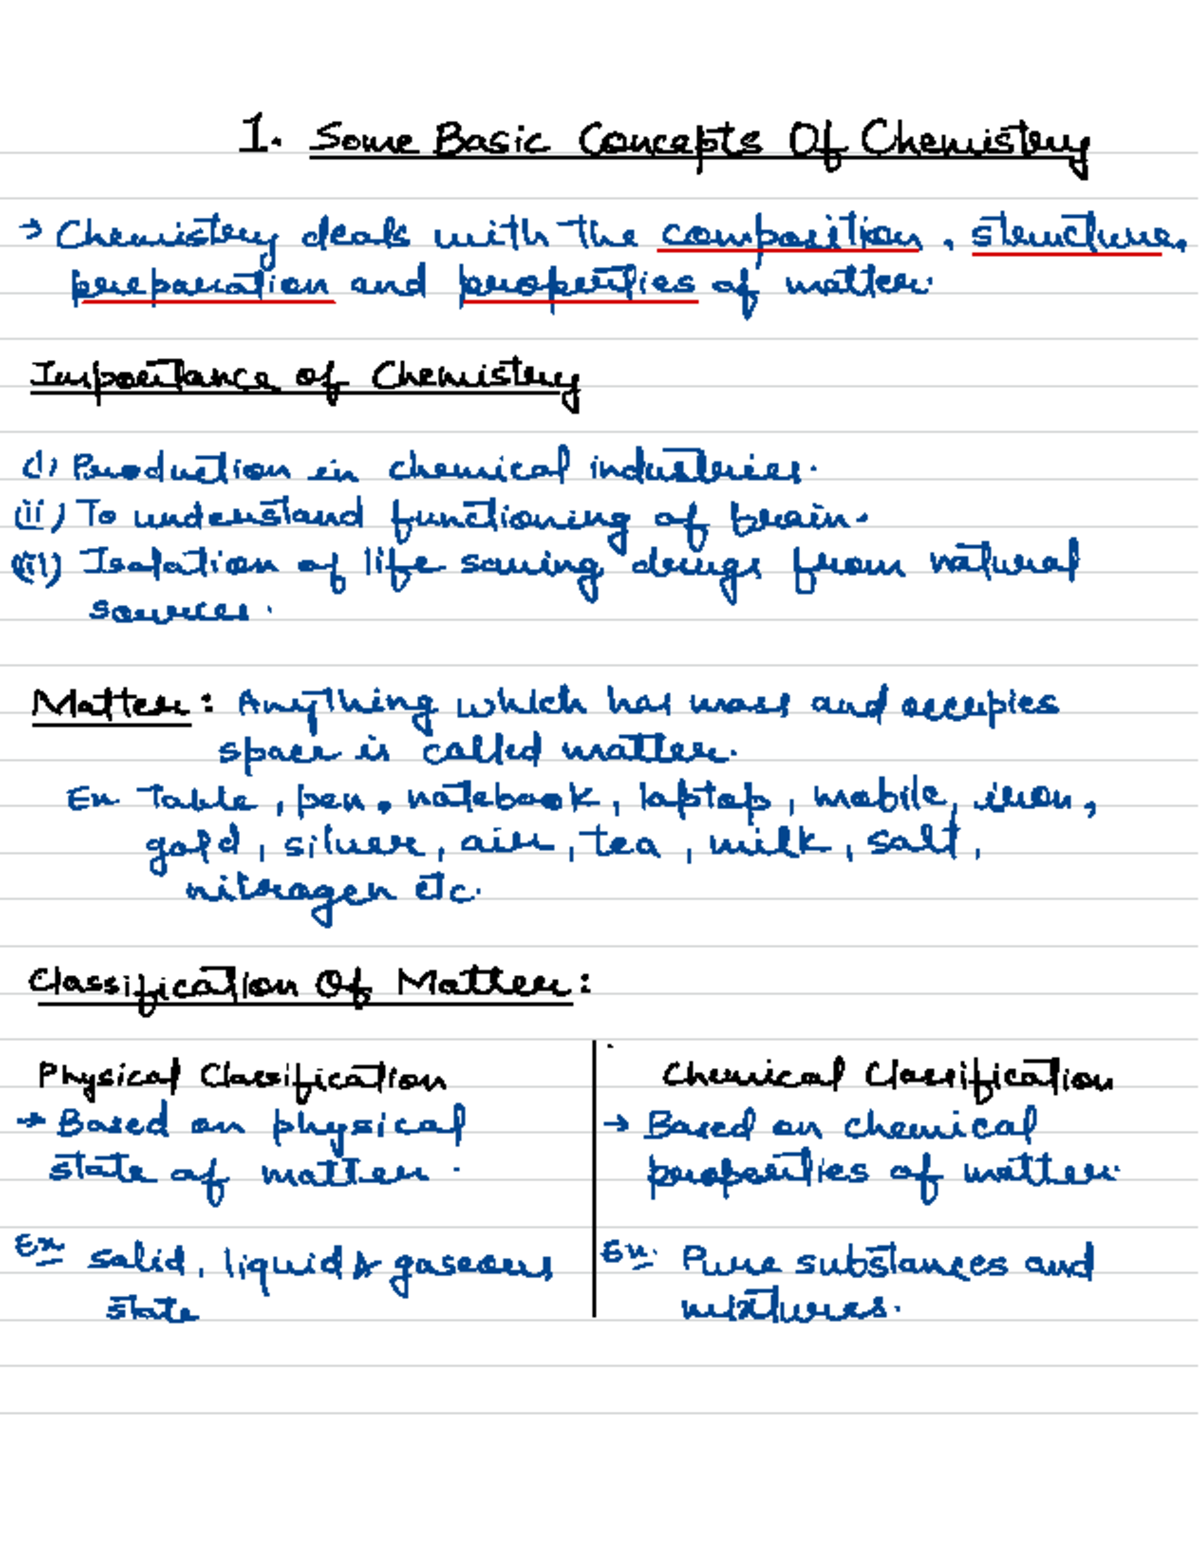 1. Some Basic Concepts Of Chemistry
→ Chemistry deals with the composition, structure,
preparation and properties of matter.
Importance of Chemistry
(i) Production in chemical industries.
(ii) To understand functioning of brain.
(iii) Isolation of life saving drugs from natural
sources.
Matter: Anything which has mass and occupies
space is called matter.
Ex Table, pen, notebook, laptop, mobile, iron,
gold, silver, air, tea, milk, salt,
nitrogen etc.
Classification Of Matter:
Physical Classification
→ Based on physical
state of matter.
Ex solid, liquid & gaseous
state
Chemical Classification
→ Based on chemical
properties of matter.
Ex. Pure substances and
mixtures.